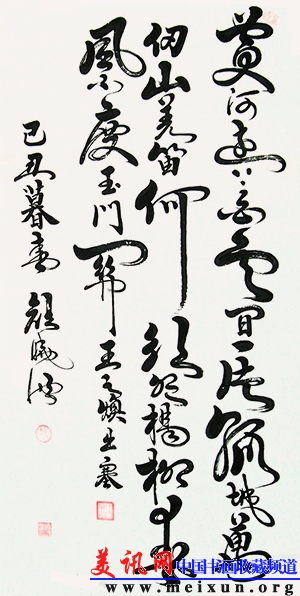 黄河遠上白雲間一片孤城萬
仞山羌笛何須怨楊柳春
風不度玉門關 王之煥出塞
己丑暮春
美讯网 中国书画收藏频道
www.meixun.org